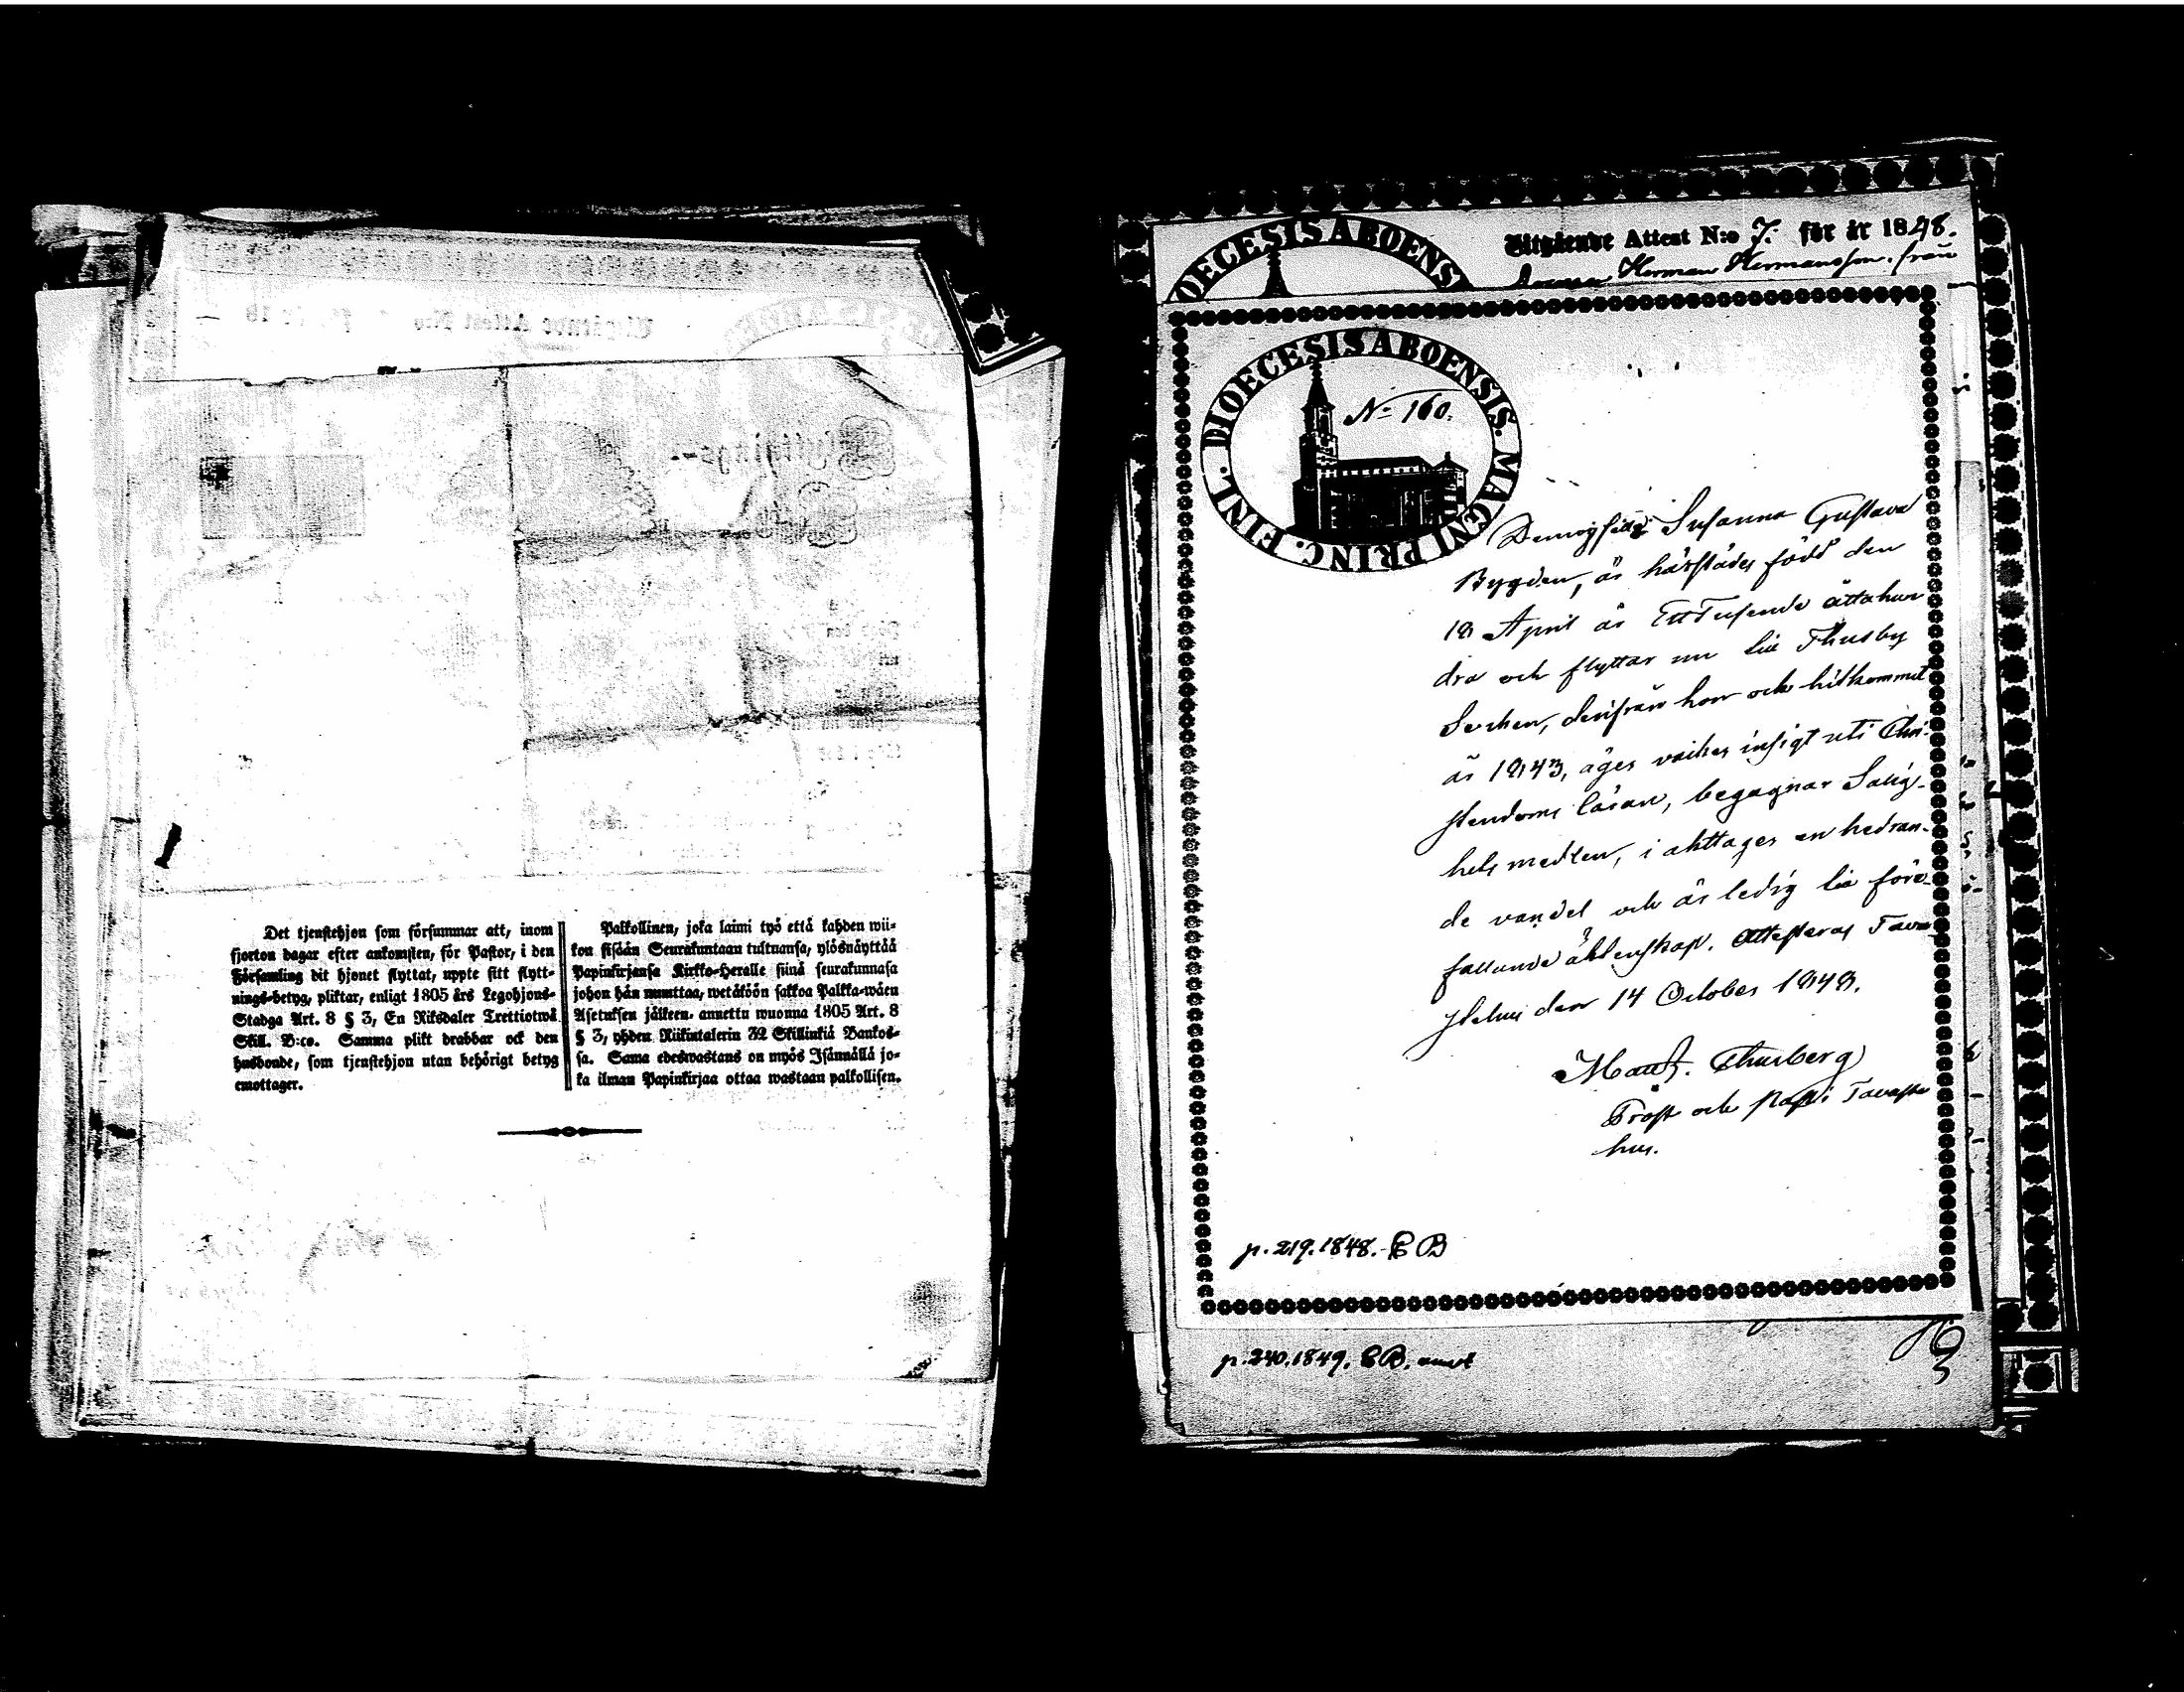 Det tjenstehjon som försummar att, inom
fjorton dagar efter ankomsten, för Pastor, i den
Församling dit hjonet flyttat, uppte sitt flytt-
nings-betyg, pliktar, enligt 1805 års Legohjons-
Stadga Art. 8 § 3, En Riksdaler Trettiotwå
Skill. B:co. Samma plikt drabbar ock den
husbonde, som tjenstehjon utan behörigt betyg
emottager.
Palkollinen, joka laimi lyö että kahden wii-
kon sisään Seurakuntaan tultuansa, ylösnäyttää
Papinkirjansa Kirkko-Heralle siinä seurakunnasa
johon hän muuttaa, wetäköön sakkoa Palkka-wäen
Asetuksen jälkeen annettu wuonna 1805 Art. 8
§ 3, yhden Riikintalerin 32 Skillinkiä Bankos-
sa. Sama edeswastaus on myös Isännällä jo-
ka ilman Papinkirjaa ottaa wastaan palkollisen.
DIOECESIS ABOENSIS
Utgående Attest N:o 7. för år 1848.
Herman Hermansson. från
DIOECESIS ABOENSIS. MAGNI PRINC. FINL.
N= 160.
Susanna Gustava
Bygden, är härstädes född den
18 April år Ett Tusende åttahun
dra och flyttar nu till Thusby
Socken, derifrån hon ock hitkommit
år 1843, äger insigt uti Chri-
stendoms läran, begagnar Salig-
hets medlen, i akttager en hedran-
de vandel och är ledig till före-
fallande äktenskap. Attesteras Tava-
stehus den 14 October 1848.
Thurberg
Prost och Past. i Tavaste
hus.
p. 219. 1848. E B
p. 240. 1849. E B.